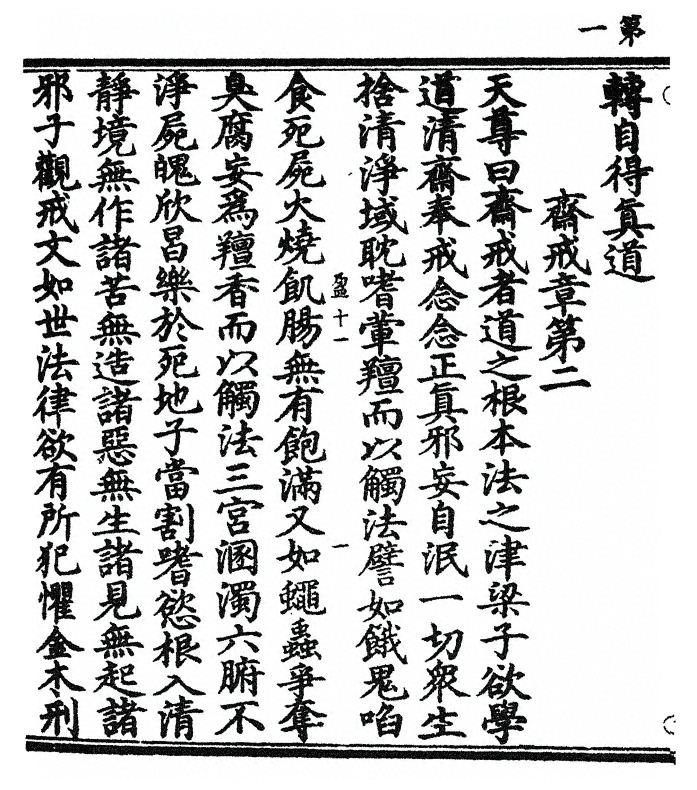 第一
轉自得眞道
齋戒章第二
天尊曰齋戒者道之根本法之津梁子欲學
道清齋奉戒念念正眞邪妄自泯一切衆生
捨清淨域耽嗜葷羶而以觸法譬如餓鬼啗
盈十一
一
食死屍火燒飢腸無有飽滿又如蠅蟲爭奪
臭腐妄爲羶香而以觸法三宮溷濁六腑不
淨屍魄欣昌樂於死地子當割嗜慾根入清
靜境無作諸苦無造諸惡無生諸見無起諸
邪子觀戒文如世法律欲有所犯懼金木刑